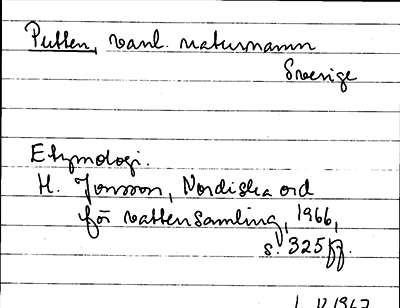 Putten, vanl. naturnamn
Sverige
Etymologi.
H. Jonsson, Nordiska ord
för vattensamling, 1966,
s. 325ff.